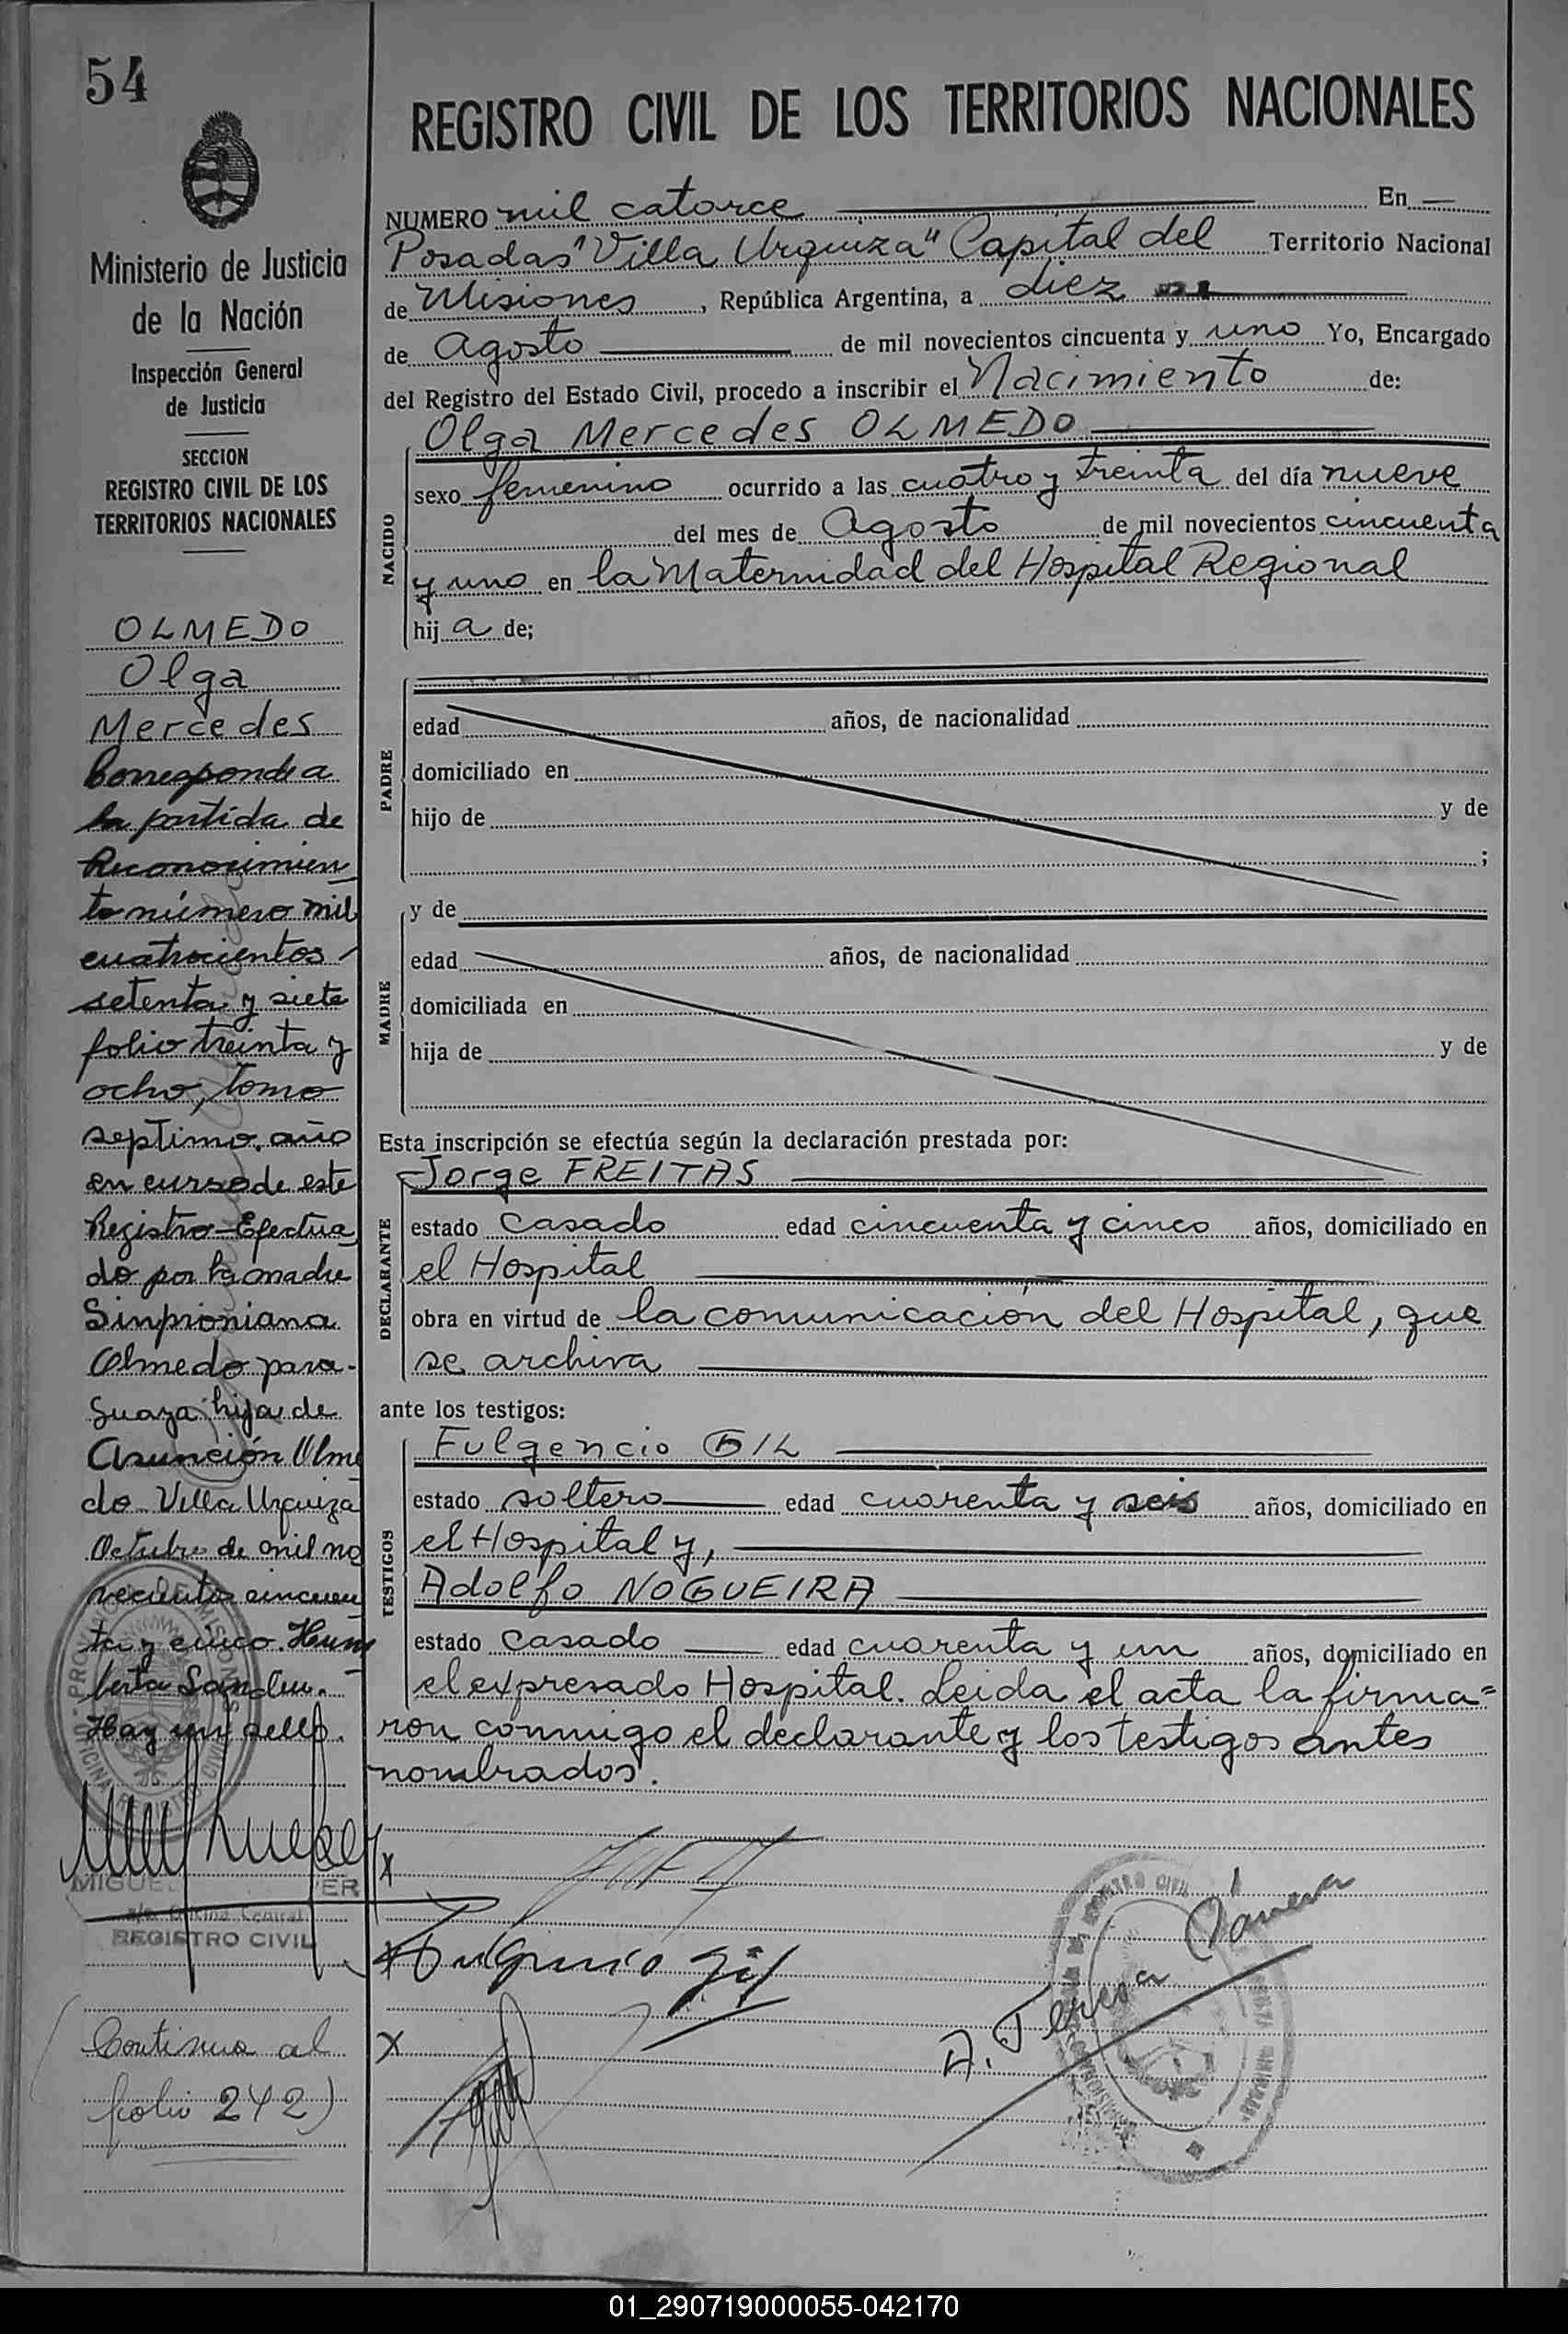 54
Ministerio de Justicia
de la Nación
Inspección General
de Justicia
SECCION
REGISTRO CIVIL DE LOS
TERRITORIOS NACIONALES
OLMEDO
Olga
Mercedes
Corresponde a
la partida de
Reconocimien
to número mil
cuatrocientos
setenta y siete
folio treinta y
ocho, tomo
septimo, año
en curso de este
Registro-Efectua
do por la madre
Sinproniana
Olmedo para-
guaya hija de
Asunción Olme
do Villa Urquiza
Octubre de mil no
vecientos cincuen
ta y cinco. Hum
berta
Hay un sello.
MIGUEL
Oficina Central
REGISTRO CIVIL
(Continua al
folio 242)
REGISTRO CIVIL DE LOS TERRITORIOS NACIONALES
NUMERO mil catorce En
Posadas "Villa Urquiza" Capital del Territorio Nacional
de Misiones, República Argentina, a diez
de Agosto de mil novecientos cincuenta y uno Yo, Encargado
del Registro del Estado Civil, procedo a inscribir el Nacimiento de:
NACIDO
Olga Mercedes OLMEDO
sexo femenino ocurrido a las cuatro y treinta del día nueve
del mes de Agosto de mil novecientos cincuenta
y uno en la Maternidad del Hospital Regional
hij a de;
PADRE
edad años, de nacionalidad
domiciliado en
hijo de y de
;
MADRE
y de
edad años, de nacionalidad
domiciliada en
hija de y de
Esta inscripción se efectúa según la declaración prestada por:
DECLARANTE
Jorge FREITAS
estado casado edad cincuenta y cinco años, domiciliado en
el Hospital
obra en virtud de la comunicación del Hospital, que
se archiva
ante los testigos:
TESTIGOS
Fulgencio GIL
estado soltero edad cuarenta y seis años, domiciliado en
el Hospital y,
Adolfo NOGUEIRA
estado casado edad cuarenta y un años, domiciliado en
el expresado Hospital. Leida el acta la firma=
ron conmigo el declarante y los testigos antes
nombrados.
X
Fulgencio Gil
X
A. Teresa
01_290719000055-042170